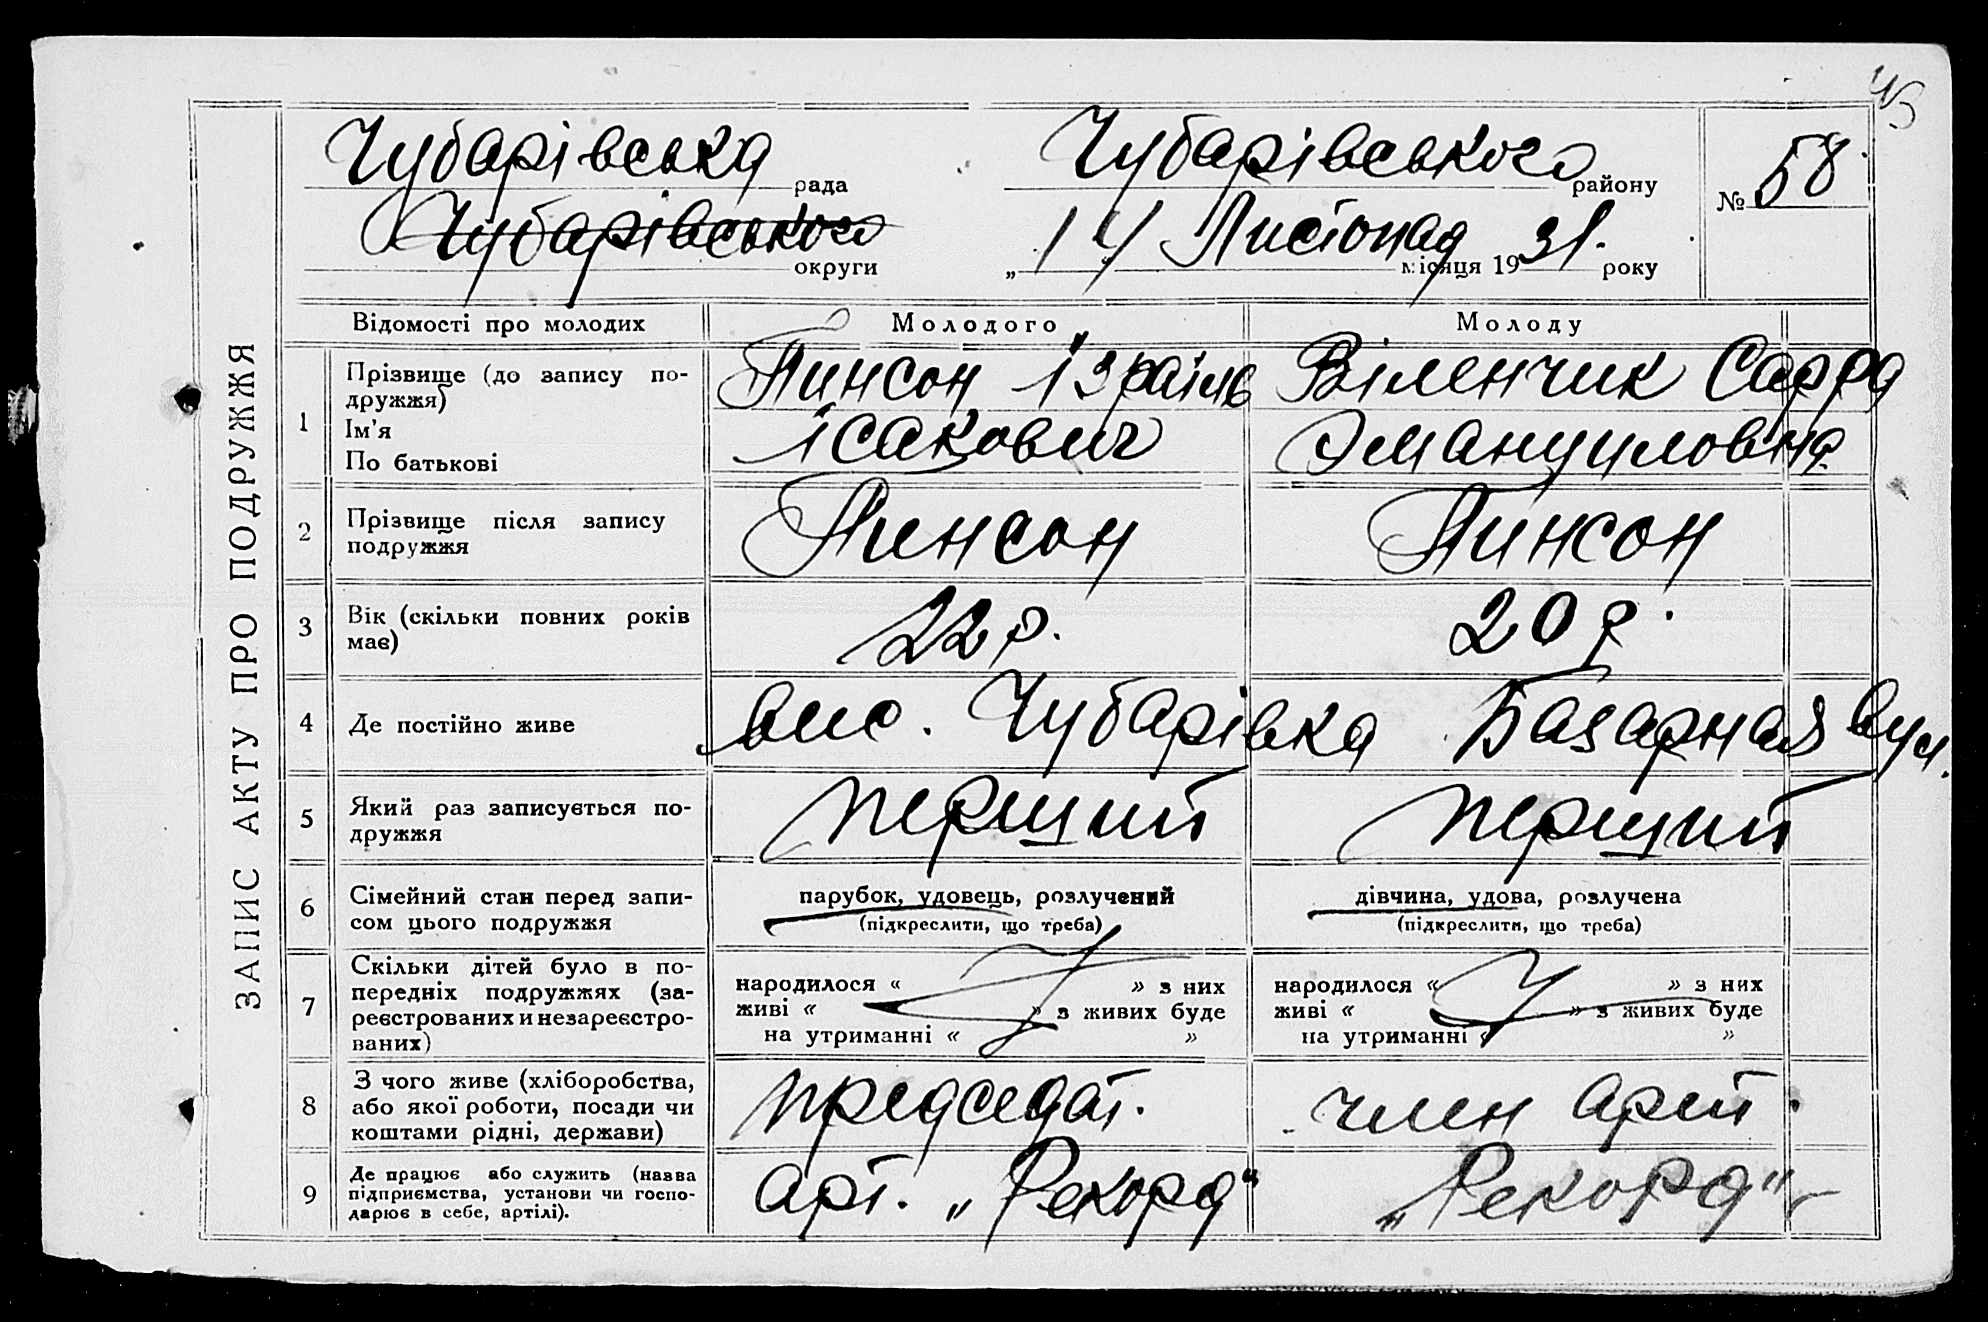 45
ЗАПИС АКТУ ПРО ПОДРУЖЖЯ
Чубарівська рада
Чубарівського району
№ 58
Чубарівського округи
„ 14 " Листопад місяця 1931. року
Відомості про молодих
Молодого
Молоду
1
Прізвище (до запису по-
дружжя)
Ім'я
По батькові
Пинсон Ізраїль
Ісакович
Віленчик Сарра
Эмануиловна
2
Прізвище після запису
подружжя
Пинсон
Пинсон
3
Вік (скільки повних років
має)
22 р.
20 р.
4
Де постійно живе
вис. Чубарівка Базарная вул.
5
Який раз записується по-
дружжя
перший
перший
6
Сімейний стан перед запи-
сом цього подружжя
парубок, удовець, розлучений
(підкреслити, що треба)
дівчина, удова, розлучена
(підкреслити, що треба)
7
Скільки дітей було в по-
передніх подружжях (за-
реєстрованих и незареєстро-
ваних)
народилося « » з них
живі « » з живих буде
на утриманні « »
народилося « » з них
живі « » з живих буде
на утриманні « »
8
З чого живе (хліборобства,
або якої роботи, посади чи
коштами рідні, держави)
председат.
член арт.
9
Де працює або служить (назва
підприємства, установи чи госпо-
дарює в себе, артілі).
арт. „Рекорд"
„Рекорд"